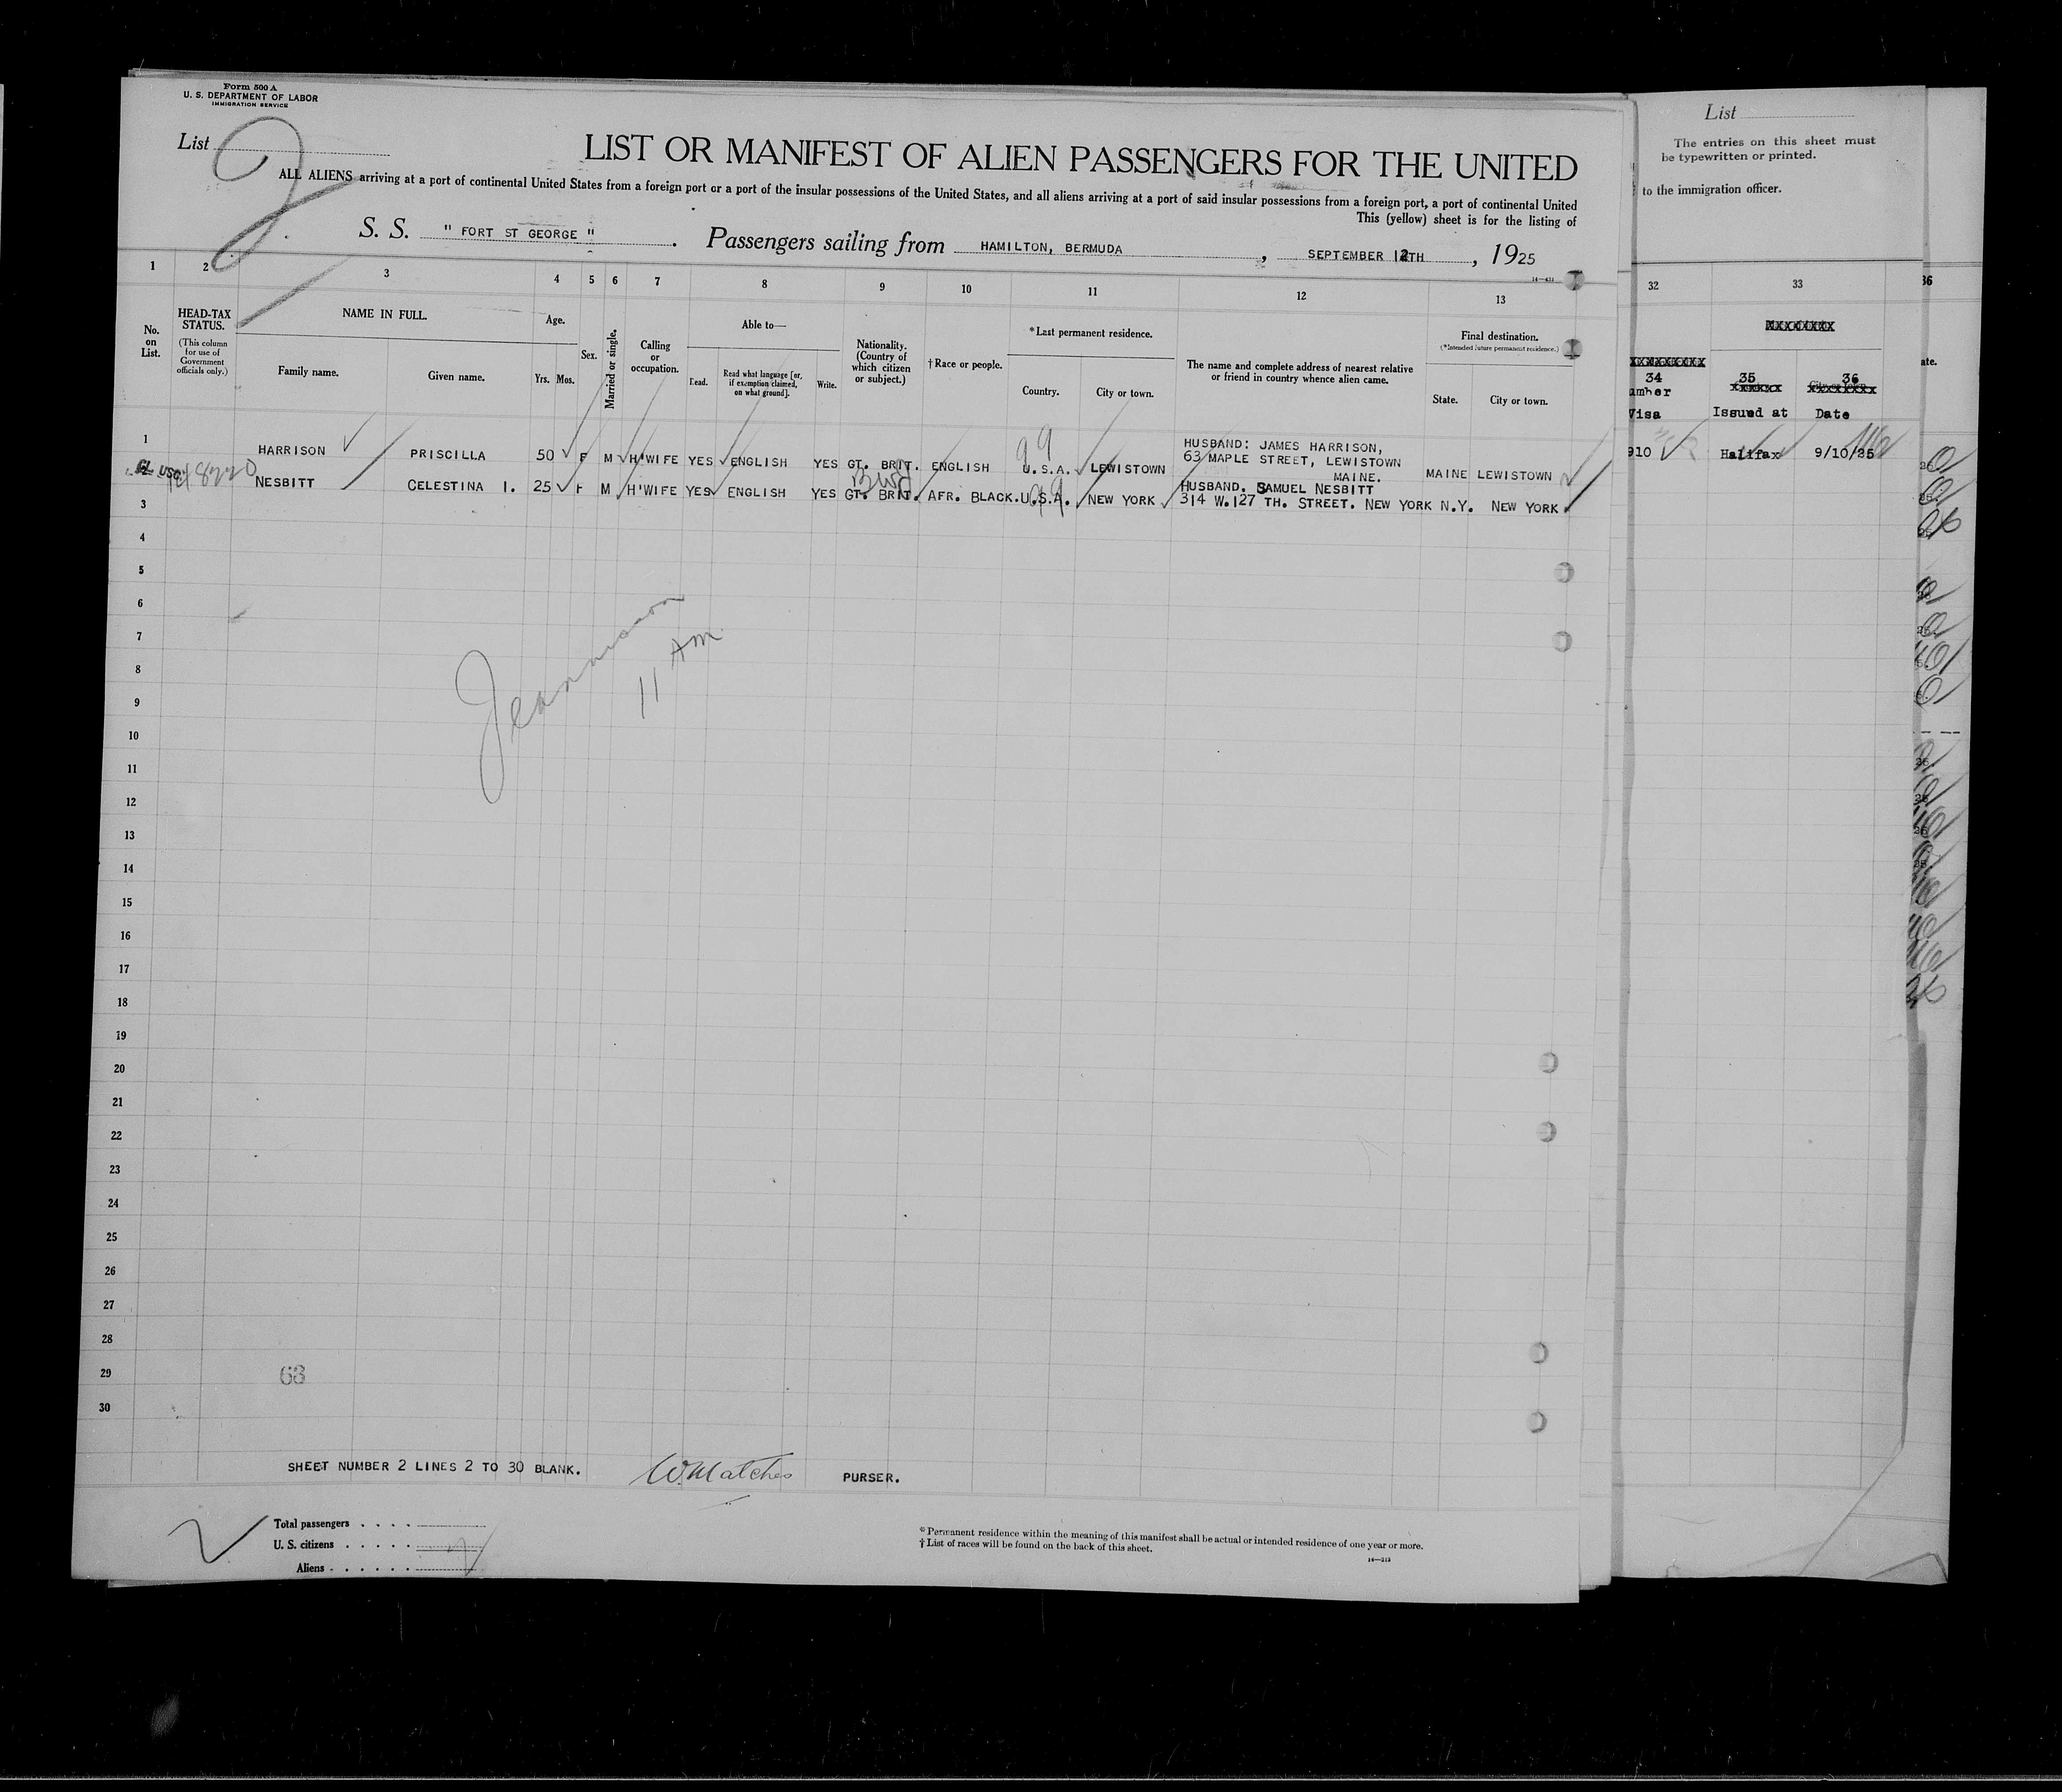 Form 500 A
U. S. DEPARTMENT OF LABOR
IMMIGRATION SERVICE
List 2
LIST OR MANIFEST OF ALIEN PASSENGERS FOR THE UNITED
ALL ALIENS arriving at a port of continental United States from a foreign port or a port of the insular possessions of the United States, and all aliens arriving at a port of said insular possessions from a foreign port, a port of continental United
This (yellow) sheet is for the listing of
S. S. " FORT ST GEORGE " . Passengers sailing from HAMILTON, BERMUDA , SEPTEMBER 12TH , 1925
1 2 3 4 5 6 7 8 9 10 11 12 13
No. on List.
HEAD-TAX STATUS.
(This column for use of Government officials only.)
NAME IN FULL.
Family name. Given name.
Age.
Yrs. Mos.
Sex.
Married or single.
Calling or occupation.
Able to—
Read. Read what language [or, if exemption claimed, on what ground]. Write.
Nationality. (Country of which citizen or subject.)
† Race or people.
*Last permanent residence.
Country. City or town.
The name and complete address of nearest relative or friend in country whence alien came.
Final destination.
(*Intended future permanent residence.)
State. City or town.
1 HARRISON PRISCILLA 50 F M H'WIFE YES ENGLISH YES GT. BRIT. ENGLISH U.S.A. LEWISTOWN HUSBAND: JAMES HARRISON,
63 MAPLE STREET, LEWISTOWN
MAINE. MAINE LEWISTOWN
NESBITT CELESTINA I. 25 F M H'WIFE YES ENGLISH YES GT. BRIT. AFR. BLACK. U.S.A. NEW YORK HUSBAND. SAMUEL NESBITT
314 W.127 TH. STREET. NEW YORK N.Y. NEW YORK
99
99
3
4
5
6
7
8
9
10
11
12
13
14
15
16
17
18
19
20
21
22
23
24
25
26
27
28
29
30
11 AM
63
SHEET NUMBER 2 LINES 2 TO 30 BLANK. PURSER.
Total passengers
U. S. citizens
Aliens
* Permanent residence within the meaning of this manifest shall be actual or intended residence of one year or more.
† List of races will be found on the back of this sheet.
List
The entries on this sheet must
be typewritten or printed.
to the immigration officer.
32 33 36
34 35 36
Visa Issued at Date
910 Halifax 9/10/25
ate.